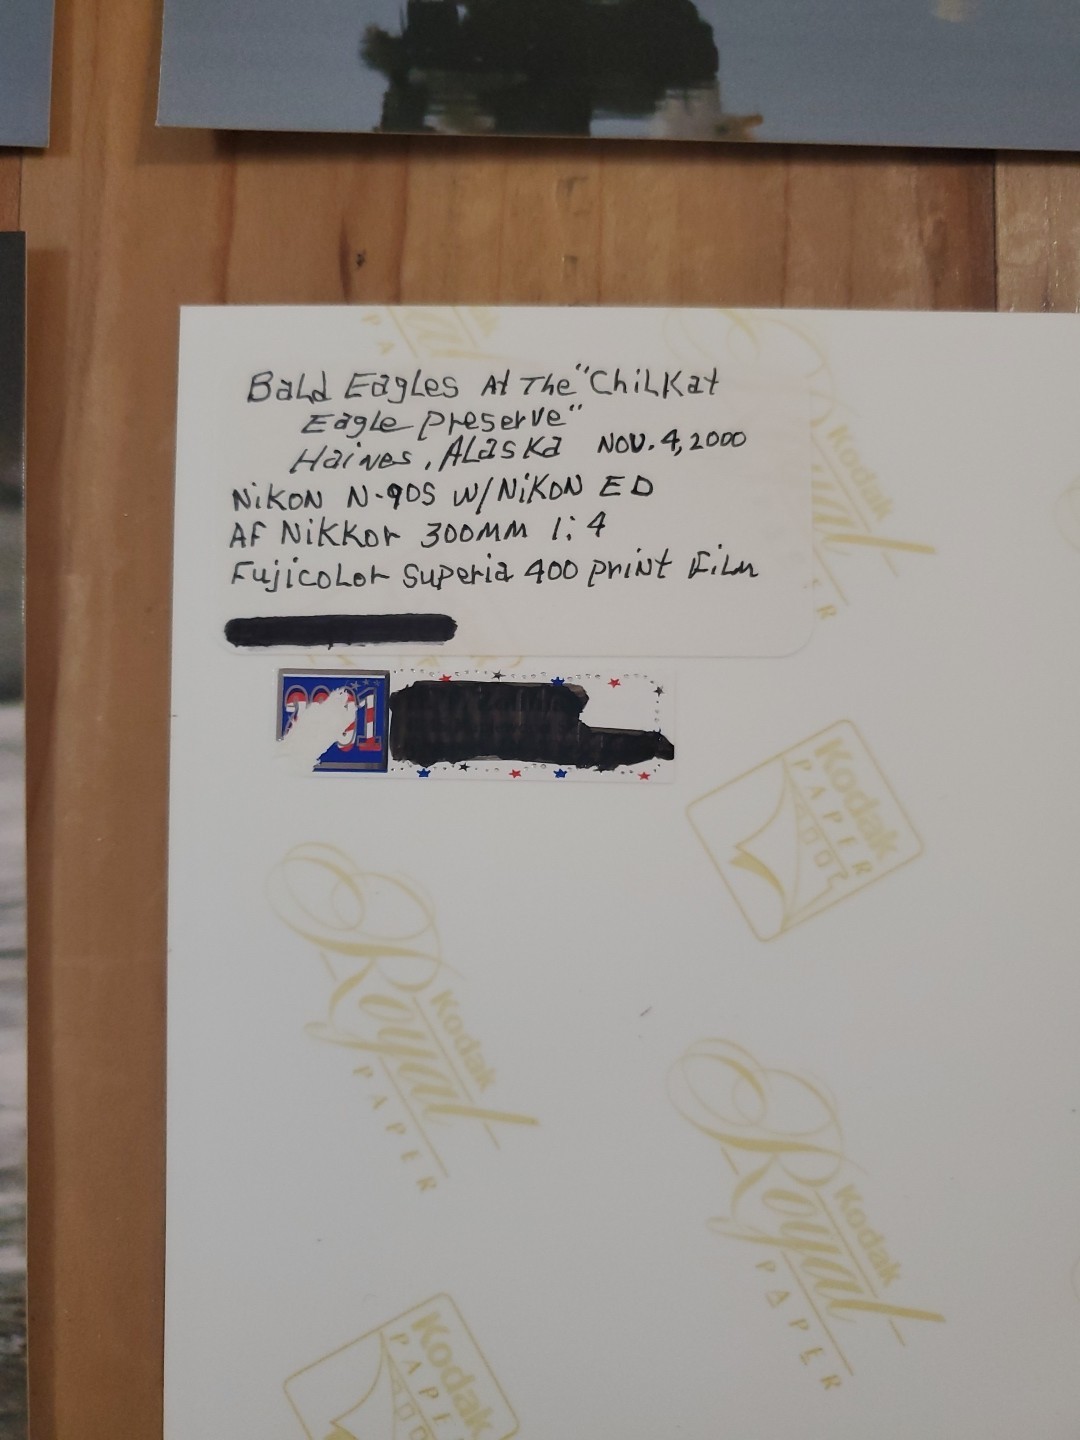 Bald Eagles At The "Chilkat
Eagle preserve"
Haines, Alaska NOV. 4, 2000
Nikon N-90S W/Nikon ED
AF Nikkor 300MM 1:4
Fujicolor Superia 400 print Film
Kodak
Kodak
PAPER
Royal
Kodak
PAPER
Royal
Kodak
PAPER
Kodak
PAPER